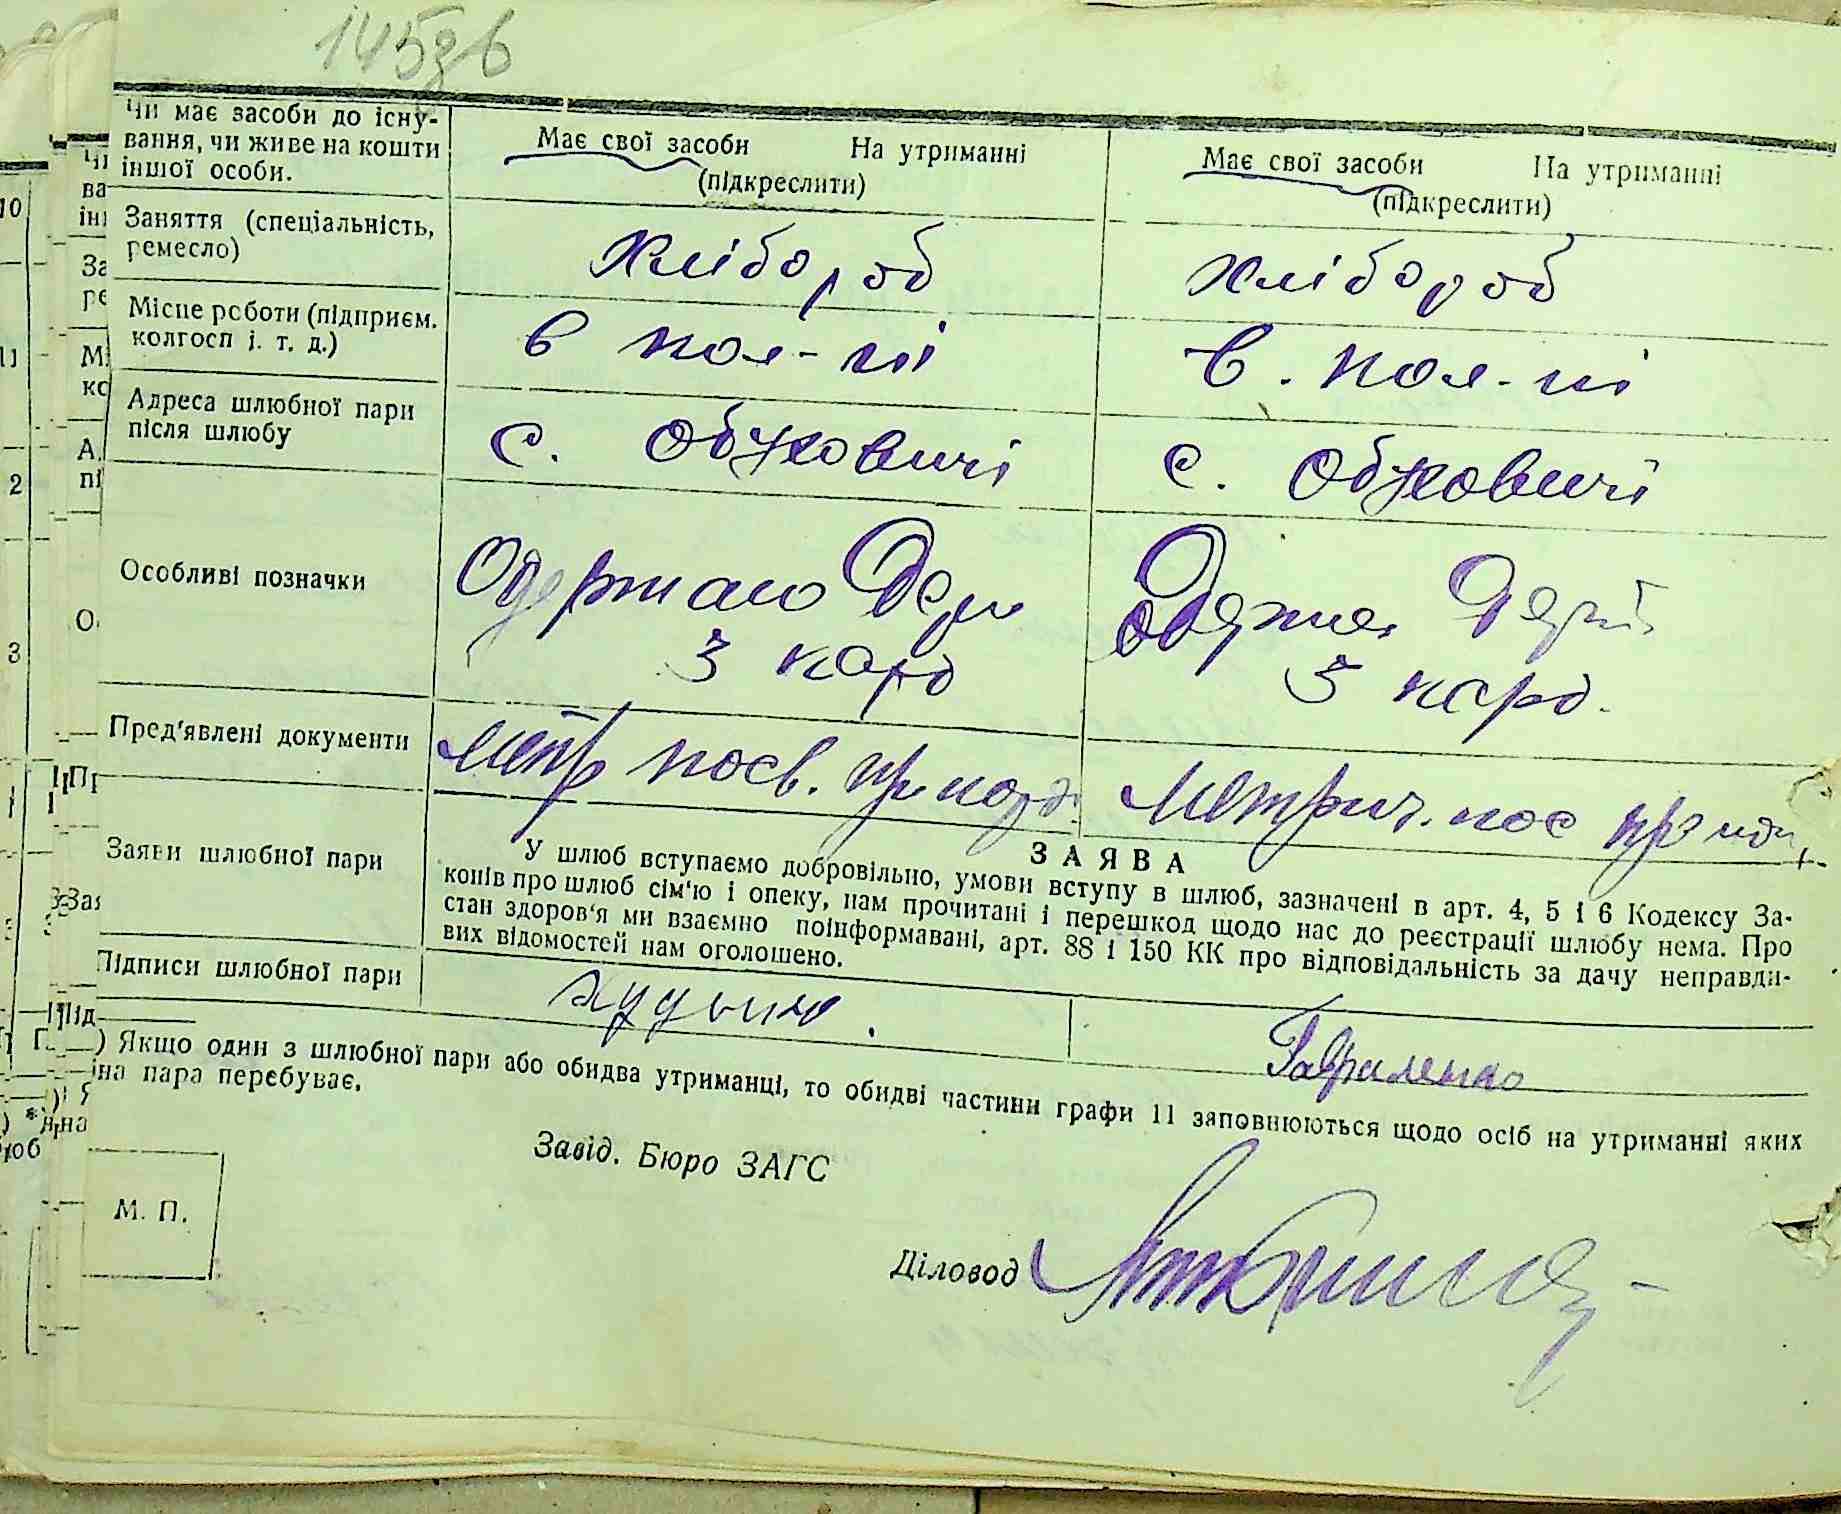 145зв
Чи має засоби до існу-
вання, чи живе на кошти
іншої особи.
Має свої засоби На утриманні
(підкреслити)
Має свої засоби На утриманні
(підкреслити)
Заняття (спеціальність,
ремесло)
Хлібороб
хлібороб
Місце роботи (підприєм.
колгосп і. т. д.)
в кол-пі
в. кол-пі
Адреса шлюбної пари
після шлюбу
с. Обуховичі
с. Обуховичі
Особливі позначки
3 карб
3 карб.
Пред'явлені документи
метр посв.
Метрич. пос
Заяви шлюбної пари
ЗАЯВА
У шлюб вступаємо добровільно, умови вступу в шлюб, зазначені в арт. 4, 5 і 6 Кодексу За-
конів про шлюб сім'ю і опеку, нам прочитані і перешкод щодо нас до реєстрації шлюбу нема. Про
стан здоров'я ми взаємно поінформавані, арт. 88 і 150 КК про відповідальність за дачу неправди-
вих відомостей нам оголошено.
Підписи шлюбної пари
Гавриленко
) Якщо один з шлюбної пари або обидва утриманці, то обидві частини графи 11 заповнюються щодо осіб на утриманні яких
на пара перебуває.
Завід. Бюро ЗАГС
М. П.
Діловод